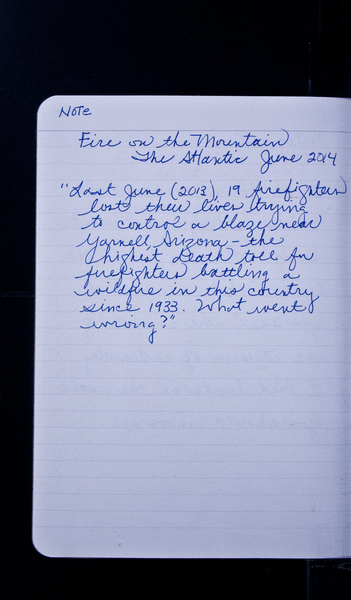 Note
Fire on the Mountain
The Atlantic June 2014
"Last June (2013), 19 firefighters
lost their lives trying
to control a blaze near
Yarnell, Arizona – the
highest death toll for
firefighters battling a
wildfire in this country
since 1933. What went
wrong?"